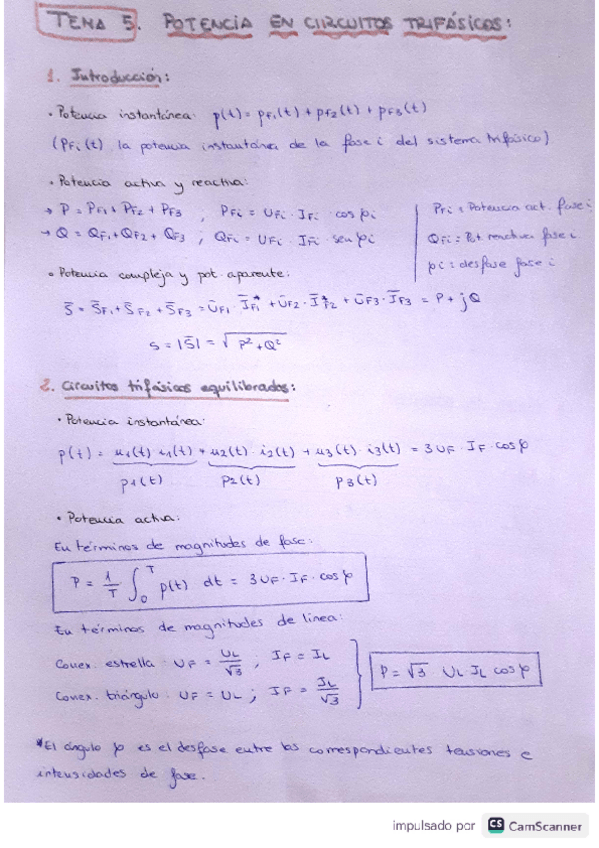 TEMA 5. POTENCIA EN CIRCUITOS TRIFÁSICOS:
1. Introducción:
• Potencia instantánea: p(t) = pF1(t) + pF2(t) + pF3(t)
(PFi(t) la potencia instantánea de la fase i del sistema trifásico)
• Potencia activa y reactiva:
→ P = PF1 + PF2 + PF3 , PFi = UFi · IFi · cos φi
→ Q = QF1 + QF2 + QF3 ; QFi = UFi · IFi · sen φi
PFi = Potencia act. fase i
QFi = Pot reactiva fase i
φi = desfase fase i
• Potencia compleja y pot. aparente:
S̄ = S̄F1 + S̄F2 + S̄F3 = ŪF1 · ĪF1* + ŪF2 · ĪF2* + ŪF3 · ĪF3* = P + jQ
S = |S̄| = √P² + Q²
2. Circuitos trifásicos equilibrados:
• Potencia instantánea:
p(t) = u1(t) · i1(t) + u2(t) · i2(t) + u3(t) · i3(t) = 3 UF · IF · cos φ
p1(t) p2(t) p3(t)
• Potencia activa:
En términos de magnitudes de fase:
P = 1/T ∫₀ᵀ p(t) dt = 3 UF · IF · cos φ
En términos de magnitudes de línea:
Conex. estrella: UF = UL/√3 ; IF = IL
Conex. triángulo: UF = UL ; IF = IL/√3
P = √3 UL IL cos φ
*El ángulo φ es el desfase entre las correspondientes tensiones e
intensidades de fase.
impulsado por CS CamScanner